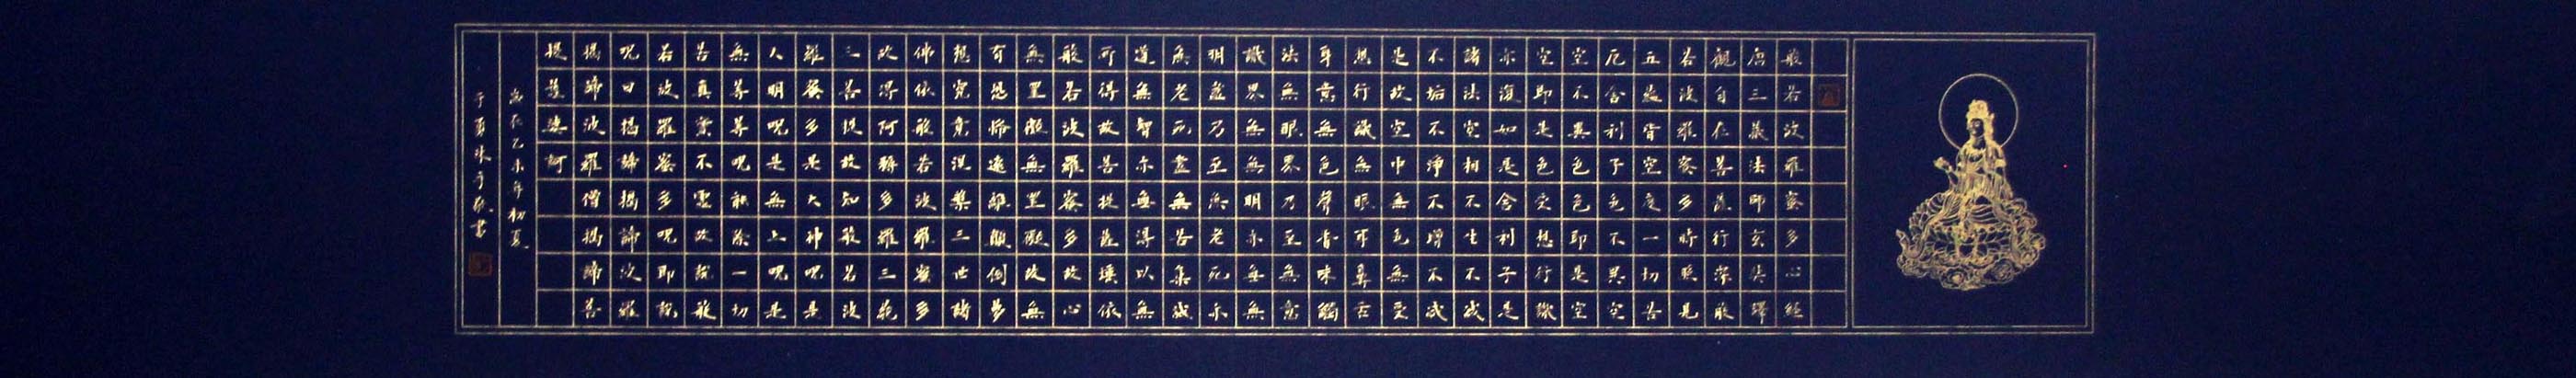 般若波羅蜜多心經
唐三藏法師玄奘譯
觀自在菩薩行深般
若波羅密多時照見
五蘊皆空度一切苦
厄舍利子色不異空
空不異色色即是空
空即是色受想行識
亦復如是舍利子是
諸法空相不生不滅
不垢不淨不增不減
是故空中無色無受
想行識無眼耳鼻舌
身意無色聲香味觸
法無眼界乃至無意
識界無無明亦無無
明盡乃至無老死亦
無老死盡無苦集滅
道無智亦無得以無
所得故菩提薩埵依
般若波羅密多故心
無罣礙無罣礙故無
有恐怖遠離顛倒夢
想究竟涅槃三世諸
佛依般若波羅蜜多
故得阿耨多羅三藐
三菩提故知般若波
羅密多是大神呪是
大明呪是無上呪是
無等等呪能除一切
苦真實不虛故說般
若波羅密多呪即說
呪曰揭諦揭諦波羅
揭諦波羅僧揭諦菩
提薩婆訶
歲在乙未年初夏
書